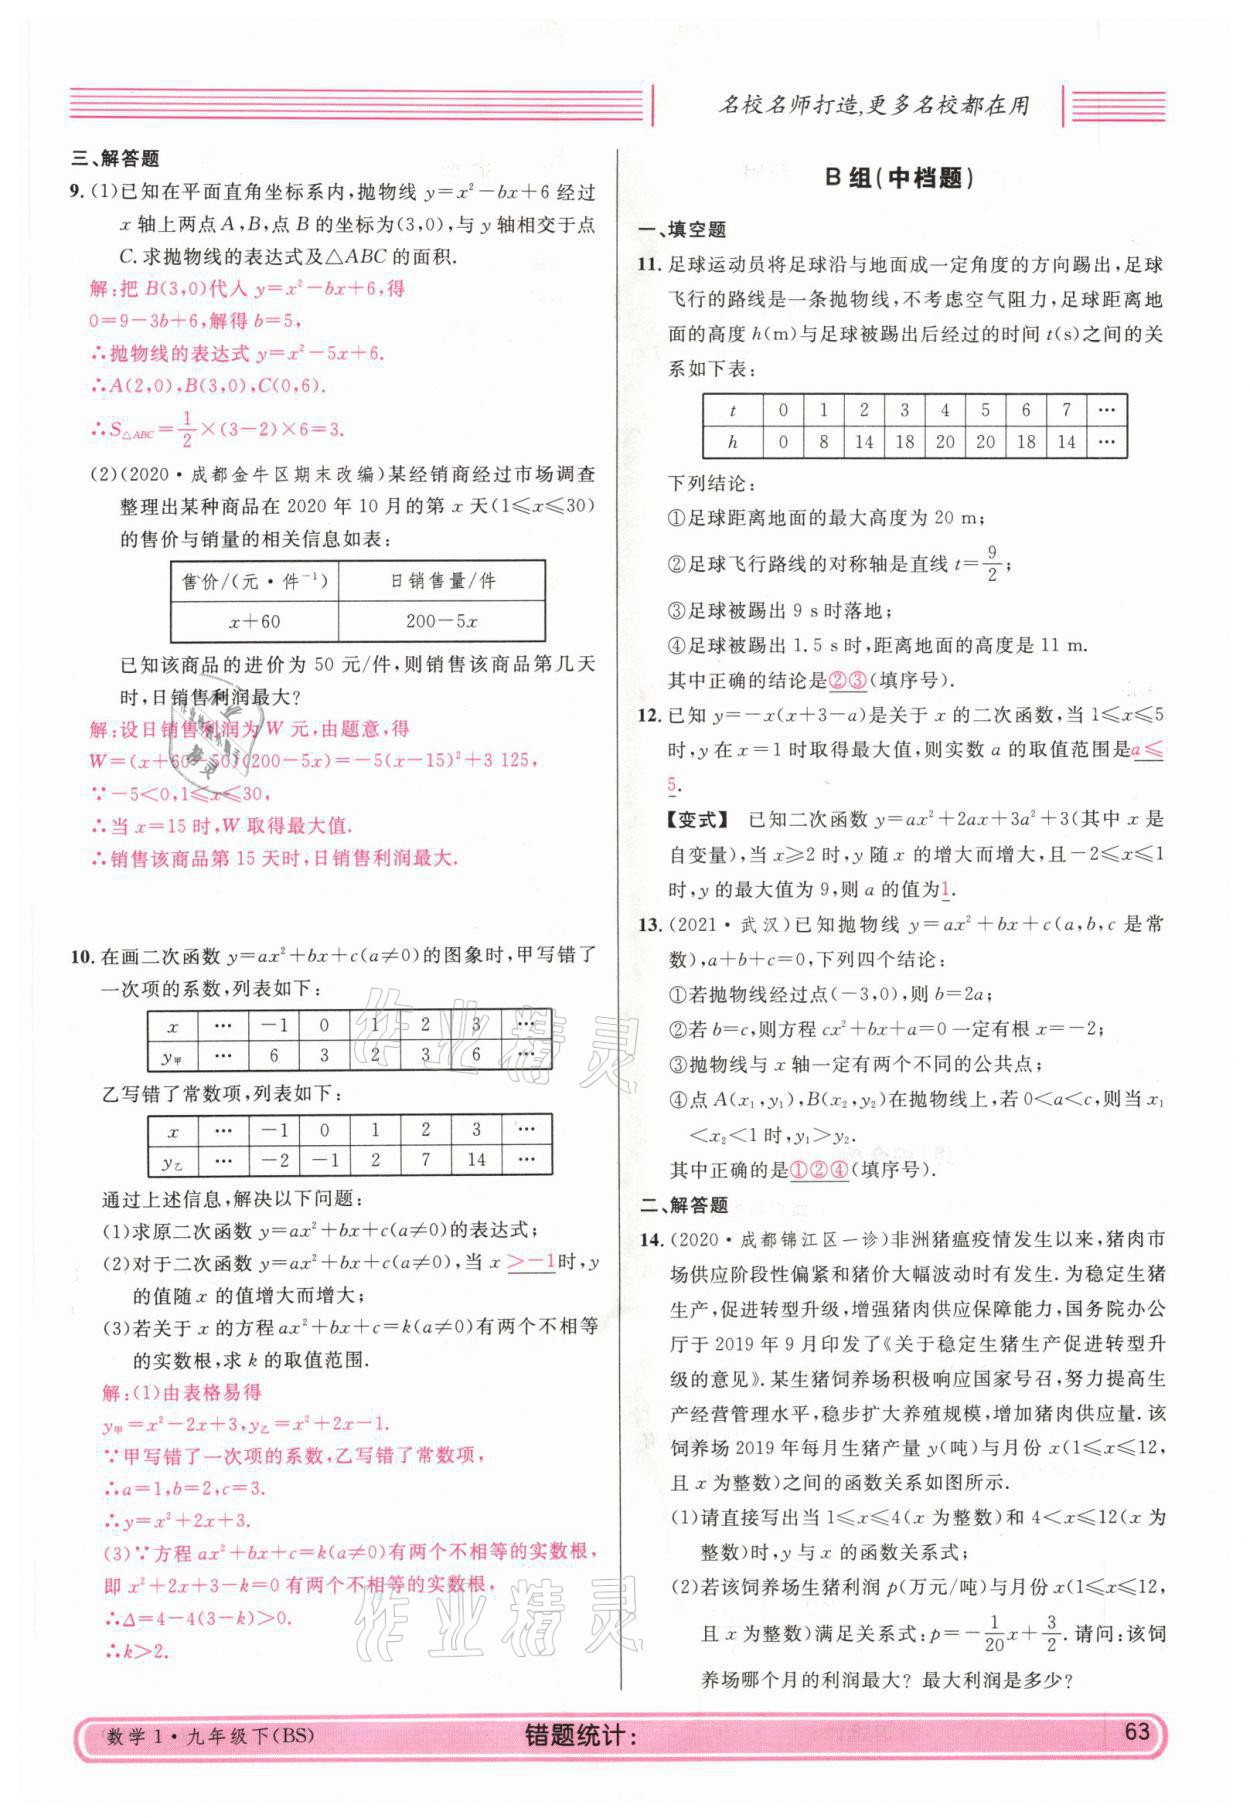 名校名师打造,更多名校都在用
三、解答题
9. (1)已知在平面直角坐标系内,抛物线 y=x²-bx+6 经过
x 轴上两点 A,B,点 B 的坐标为(3,0),与 y 轴相交于点
C.求抛物线的表达式及△ABC 的面积.
解:把 B(3,0)代入 y=x²-bx+6,得
0=9-3b+6,解得 b=5,
∴抛物线的表达式 y=x²-5x+6.
∴A(2,0),B(3,0),C(0,6).
∴S△ABC=1/2×(3-2)×6=3.
(2)(2020·成都金牛区期末改编)某经销商经过市场调查
整理出某种商品在 2020 年 10 月的第 x 天(1≤x≤30)
的售价与销量的相关信息如表:
售价/(元·件⁻¹) 日销售量/件
x+60 200-5x
已知该商品的进价为 50 元/件,则销售该商品第几天
时,日销售利润最大?
解:设日销售利润为 W 元,由题意,得
W=(x+60-50)(200-5x)=-5(x-15)²+3 125,
∵-5<0,1≤x≤30,
∴当 x=15 时,W 取得最大值.
∴销售该商品第 15 天时,日销售利润最大.
10. 在画二次函数 y=ax²+bx+c(a≠0)的图象时,甲写错了
一次项的系数,列表如下:
x … -1 0 1 2 3 …
y甲 … 6 3 2 3 6 …
乙写错了常数项,列表如下:
x … -1 0 1 2 3 …
y乙 … -2 -1 2 7 14 …
通过上述信息,解决以下问题:
(1)求原二次函数 y=ax²+bx+c(a≠0)的表达式;
(2)对于二次函数 y=ax²+bx+c(a≠0),当 x >-1时,y
的值随 x 的值增大而增大;
(3)若关于 x 的方程 ax²+bx+c=k(a≠0)有两个不相等
的实数根,求 k 的取值范围.
解:(1)由表格易得
y甲=x²-2x+3,y乙=x²+2x-1.
∵甲写错了一次项的系数,乙写错了常数项,
∴a=1,b=2,c=3.
∴y=x²+2x+3.
(3)∵方程 ax²+bx+c=k(a≠0)有两个不相等的实数根,
即 x²+2x+3-k=0 有两个不相等的实数根,
∴Δ=4-4(3-k)>0.
∴k>2.
B 组(中档题)
一、填空题
11. 足球运动员将足球沿与地面成一定角度的方向踢出,足球
飞行的路线是一条抛物线,不考虑空气阻力,足球距离地
面的高度 h(m)与足球被踢出后经过的时间 t(s)之间的关
系如下表:
t 0 1 2 3 4 5 6 7 …
h 0 8 14 18 20 20 18 14 …
下列结论:
①足球距离地面的最大高度为 20 m;
②足球飞行路线的对称轴是直线 t=9/2;
③足球被踢出 9 s 时落地;
④足球被踢出 1.5 s 时,距离地面的高度是 11 m.
其中正确的结论是②③(填序号).
12. 已知 y=-x(x+3-a)是关于 x 的二次函数,当 1≤x≤5
时,y 在 x=1 时取得最大值,则实数 a 的取值范围是a≤
5.
【变式】 已知二次函数 y=ax²+2ax+3a²+3(其中 x 是
自变量),当 x≥2 时,y 随 x 的增大而增大,且-2≤x≤1
时,y 的最大值为 9,则 a 的值为1.
13. (2021·武汉)已知抛物线 y=ax²+bx+c(a,b,c 是常
数),a+b+c=0,下列四个结论:
①若抛物线经过点(-3,0),则 b=2a;
②若 b=c,则方程 cx²+bx+a=0 一定有根 x=-2;
③抛物线与 x 轴一定有两个不同的公共点;
④点 A(x₁,y₁),B(x₂,y₂)在抛物线上,若 0<a<c,则当 x₁
<x₂<1 时,y₁>y₂.
其中正确的是①②④(填序号).
二、解答题
14. (2020·成都锦江区一诊)非洲猪瘟疫情发生以来,猪肉市
场供应阶段性偏紧和猪价大幅波动时有发生.为稳定生猪
生产,促进转型升级,增强猪肉供应保障能力,国务院办公
厅于 2019 年 9 月印发了《关于稳定生猪生产促进转型升
级的意见》.某生猪饲养场积极响应国家号召,努力提高生
产经营管理水平,稳步扩大养殖规模,增加猪肉供应量.该
饲养场 2019 年每月生猪产量 y(吨)与月份 x(1≤x≤12,
且 x 为整数)之间的函数关系如图所示.
(1)请直接写出当 1≤x≤4(x 为整数)和 4<x≤12(x 为
整数)时,y 与 x 的函数关系式;
(2)若该饲养场生猪利润 p(万元/吨)与月份 x(1≤x≤12,
且 x 为整数)满足关系式:p=-1/20x+3/2.请问:该饲
养场哪个月的利润最大? 最大利润是多少?
数学 1·九年级下(BS)
错题统计:
63
作业精灵
作业精灵